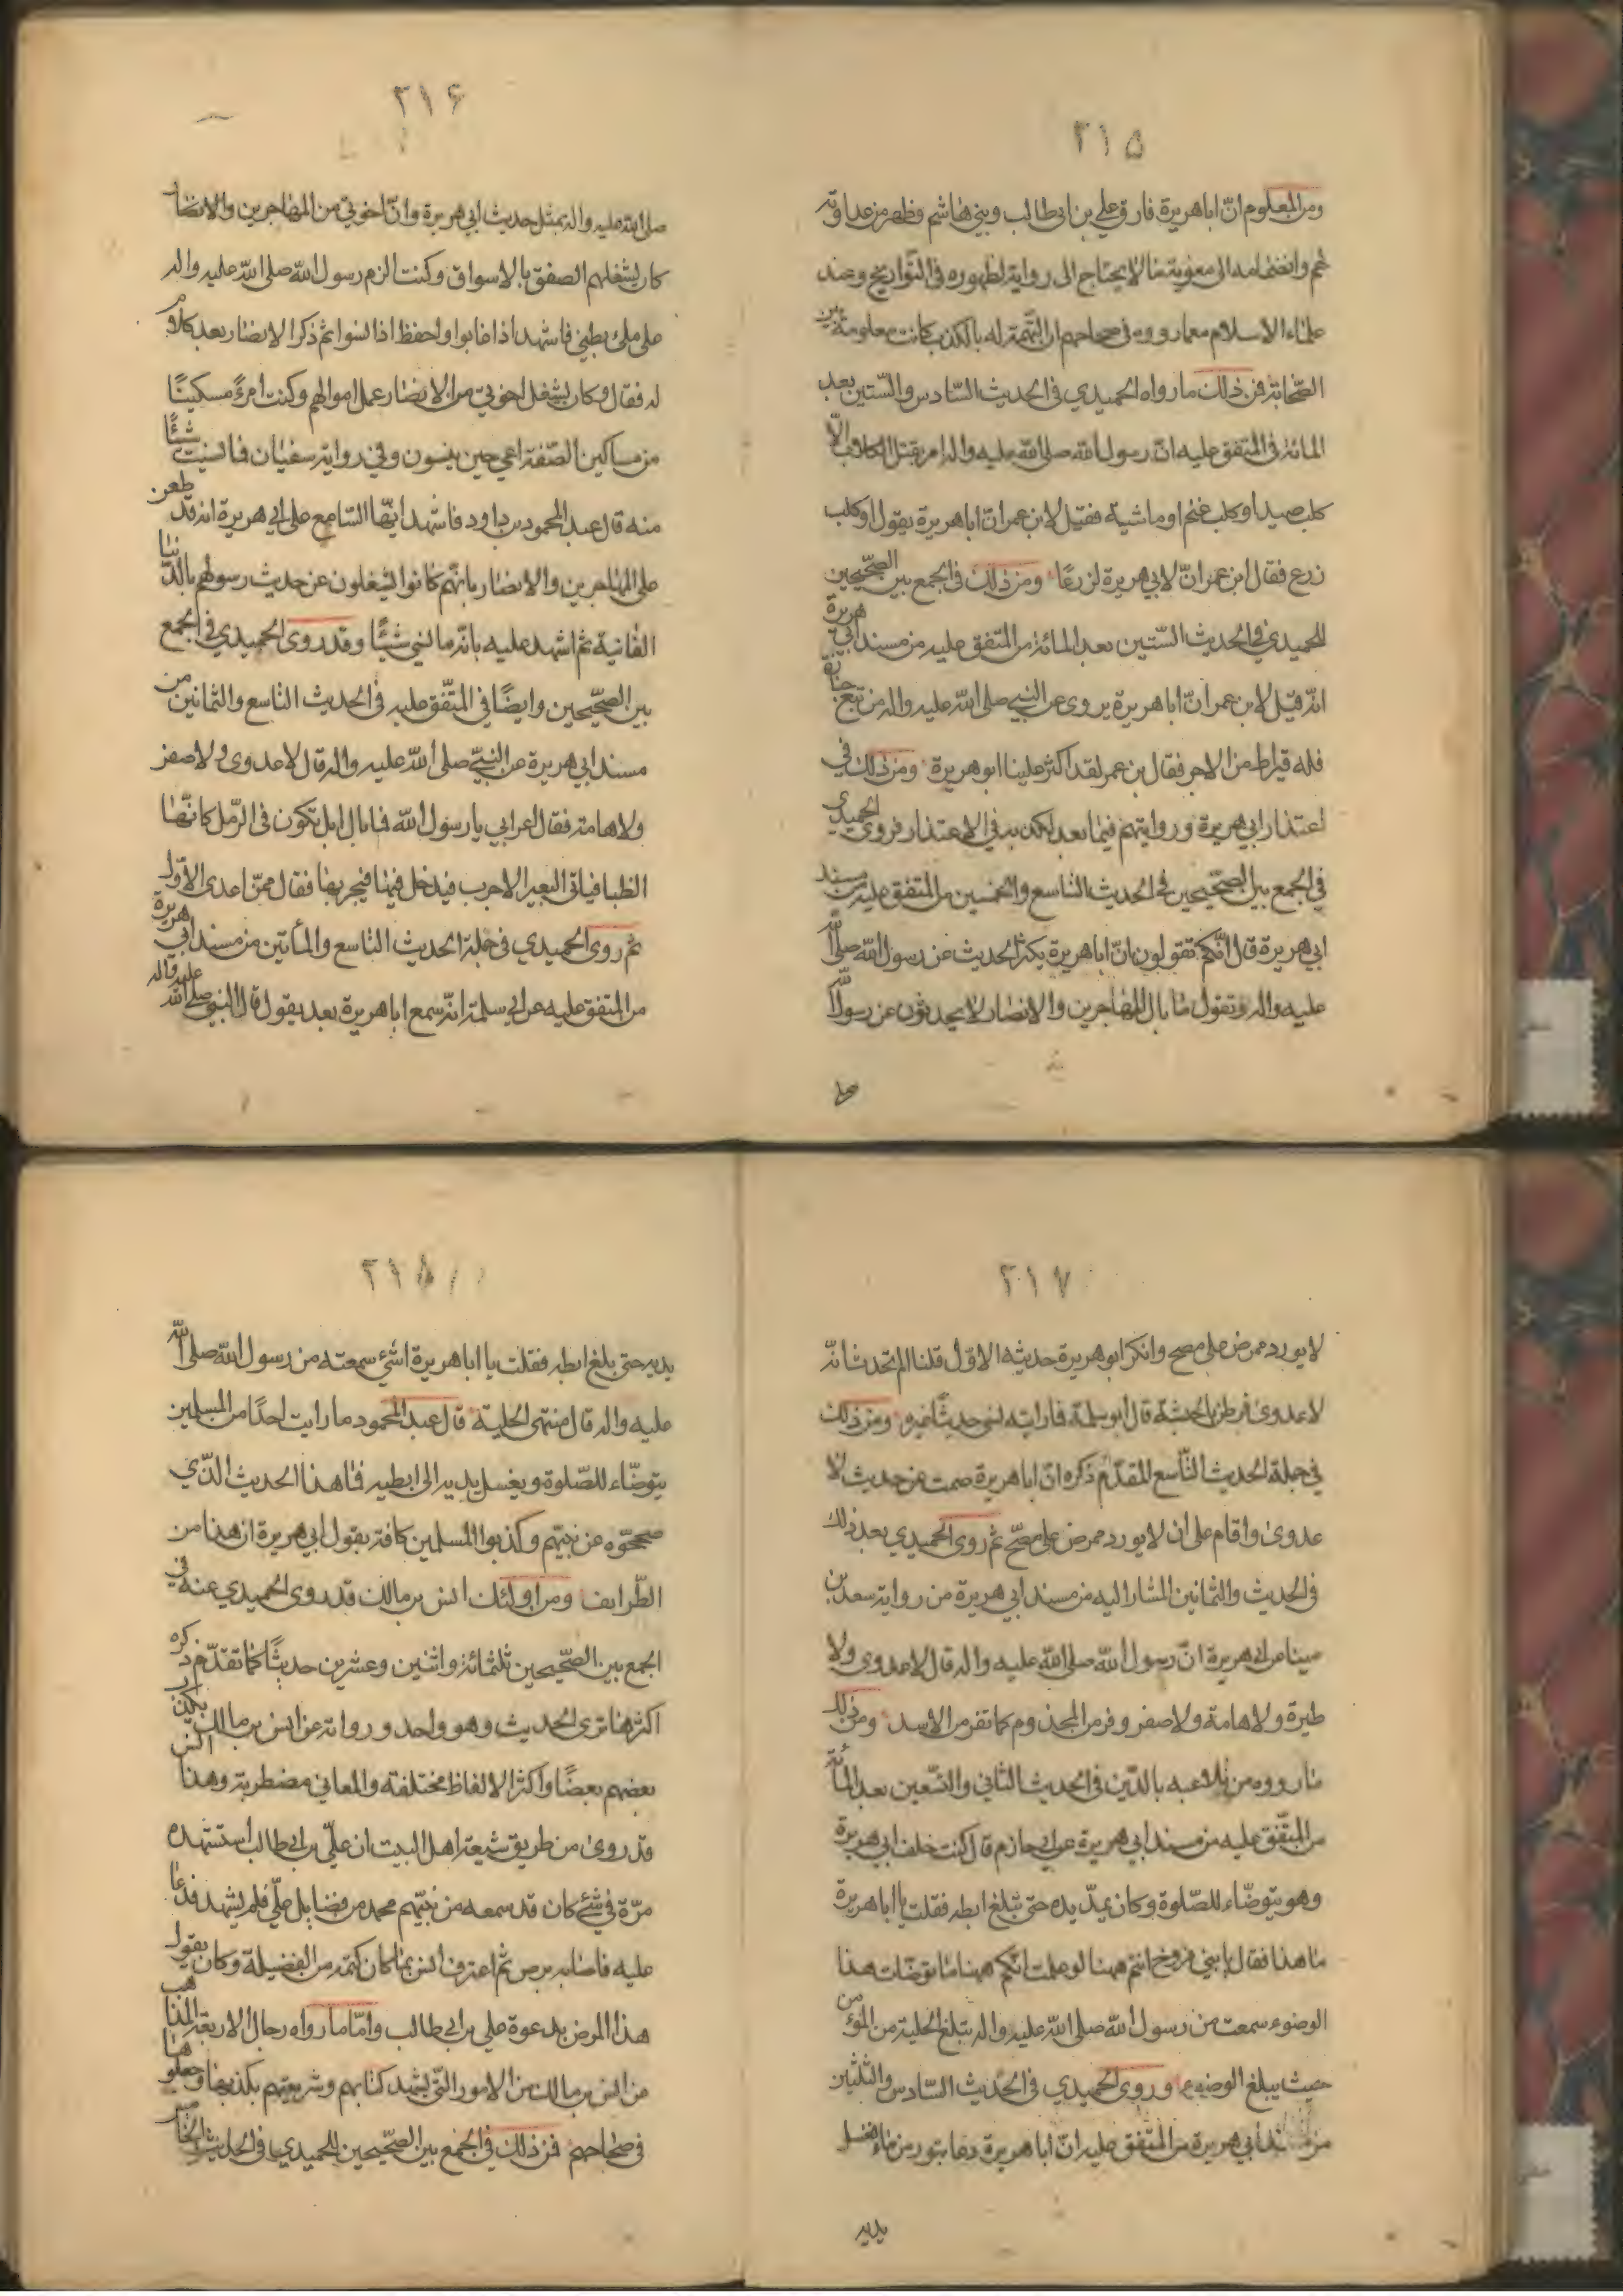 ٢١٥
ومن المعلوم انّ اباهريرة فارق علي بن ابى طالب وبنى هاشم وظهر من عداوته
لهم وانضمامه الى معوية ما لا يحتاج الى رواية لظهوره فى التّواريخ وعند
علماء الاسلام معما رووه فى صحاحهم ان التّهمة له بالكذب كانت معلومة بين
الصّحابة فمن ذلك ما رواه الحميدي فى الحديث السّادس والسّتين بعد
المائة فى المتفق عليه انّ رسول الله صلى الله عليه واله امر بقتل الكلاب الّا
كلب صيد او كلب غنم او ماشية فقيل لابن عمر انّ اباهريرة يقول او كلب
زرع فقال ابن عمر انّ لابي هريرة لزرعًا ومن ذلك فى الجمع بين الصّحيحين
للحميدي فى الحديث السّتين بعد المائة من المتفق عليه من مسند ابي هريرة
انّه قيل لابن عمر انّ اباهريرة يروى عن النبي صلى الله عليه واله من تبع جنازة
فله قيراط من الاجر فقال بن عمر لقد اكثر علينا ابو هريرة ومن ذلك في
اعتذار ابي هريرة وروايتهم فيما بعد لكذبه فى الاعتذار فروى الحميدي
في الجمع بين الصّحيحين فى الحديث التاسع والخمسين من المتفق عليه من مسند
ابي هريرة قال انّكم تقولون انّ اباهريرة يكثر الحديث عن رسول الله صلى الله
عليه واله وتقول ما بال المهاجرين والانصار لا يحدثون عن رسول الله
صلى
٢١۶
صلى الله عليه واله بمثل حديث ابي هريرة وانّ اخوتي من المهاجرين والانصار
كان يشغلهم الصفق بالاسواق وكنت الزم رسول الله صلى الله عليه واله
على ملئ بطني فاشهد اذا غابوا واحفظ اذا نسوا ثم ذكر الانصار بعد كلام
له فقال وكان يشغل اخوتي من الانصار عمل اموالهم وكنت امرءً مسكينًا
من مساكين الصّفة اعي حين ينسون وفي رواية سفيان فما نسيت شيئًا
منه قال عبد المحمود بن داود فاشهد ايّها السّامع على ابي هريرة انه قد طعن
على المهاجرين والانصار بانّهم كانوا يشغلون عن حديث رسولهم بالدّنيا
الفانية ثم اشهد عليه بانّه ما نسي شيئًا وقد روى الحميدي في الجمع
بين الصّحيحين وايضًا في المتّفق عليه فى الحديث التاسع والثمانين من
مسند ابي هريرة عن النبيّ صلى الله عليه واله قال لا عدوى ولا صفر
ولا هامة فقال اعرابي يا رسول الله فما بال ابل تكون فى الرّمل كانّها
الظبا فياتى البعير الاجرب فيدخل فيها فيجربها فقال فمن اعدى الاوّل
ثم روى الحميدي في جملة الحديث التاسع والمأتين من مسند ابي هريرة
من المتفق عليه عن ابي سلمة انّه سمع اباهريرة بعد يقول قال النبي صلى الله عليه واله
٢١٧
لا يورد ممرض على مصح وانكر ابوهريرة حديثه الاوّل قلنا الم تحدث انّه
لا عدوى فرطن بالحبشة قال ابوسلمة فما رايته نسى حديثًا غيره ومن ذلك
في جملة الحديث التّاسع المقدّم ذكره انّ اباهريرة صمت عن حديث لا
عدوى واقام على ان لا يورد ممرض على مصحّ ثم روى الحميدي بعد ذلك
فى الحديث والثمانين المشار اليه من مسند ابي هريرة من رواية سعد بن
مينا عن ابي هريرة انّ رسول الله صلى الله عليه واله قال لا عدوى ولا
طيرة ولا هامة ولا صفر وفر من المجذوم كما تفر من الاسد ومن ذلك
ما رووه من تلاعبه بالدّين فى الحديث الثاني والتّسعين بعد المأئة
من المتّفق عليه من مسند ابي هريرة عن ابي حازم قال كنت خلف ابي هريرة
وهو يتوضّاء للصّلوة وكان يمدّ يده حتى تبلغ ابطه فقلت يا اباهريرة
ما هذا فقال يا بني فروخ انتم ههنا لو علمت انكم ههنا ما توضّات هذا
الوضوء سمعت من رسول الله صلى الله عليه واله تبلغ الحلية من المؤمن
حيث يبلغ الوضوء وروى الحميدي فى الحديث السّادس والثلثين
من مسند ابي هريرة من المتّفق عليه انّ اباهريرة دعا بتور من ماء فغسل
يديه
٢١٨
يديه حتى بلغ ابطه فقلت يا اباهريرة اشئ سمعته من رسول الله صلى الله
عليه واله قال منتهى الحلية قال عبد المحمود ما رايت احدًا من المسلمين
يتوضّاء للصّلوة ويغسل يديه الى ابطيه فما هذا الحديث الذّي
صححّوه عن نبيّهم وكذبوا المسلمين كافة بقول ابي هريرة ان هذا من
الطّرايف ومن اولئك انس بن مالك قد روى الحميدي عنه في
الجمع بين الصّحيحين ثلثمائة واثنين وعشرين حديثًا كما تقدّم ذكره
اكثرها ترى الحديث وهو واحد ورواته عن انس بن مالك يكذّب
بعضهم بعضًا واكثر الالفاظ مختلفة والمعاني مضطربة وهذا انس
قد روى من طريق شيعة اهل البيت ان عليّ بن ابي طالب استشهده
مرّة في شئ كان قد سمعه من نبيّهم محمد من فضايل عليّ فلم يشهد فدعا
عليه فاصابه برص ثم اعترف انس بما كان كتمه من الفضيلة وكان يقول
هذا المرض بدعوة علي بن ابي طالب وامّا ما رواه رجال الاربعة المذاهب
عن انس بن مالك من الامور التّي يشهد كتابهم وشريعتهم بكذبها وجعلوها
فى صحاحهم فمن ذلك في الجمع بين الصّحيحين للحميدي فى الحديث الخامس